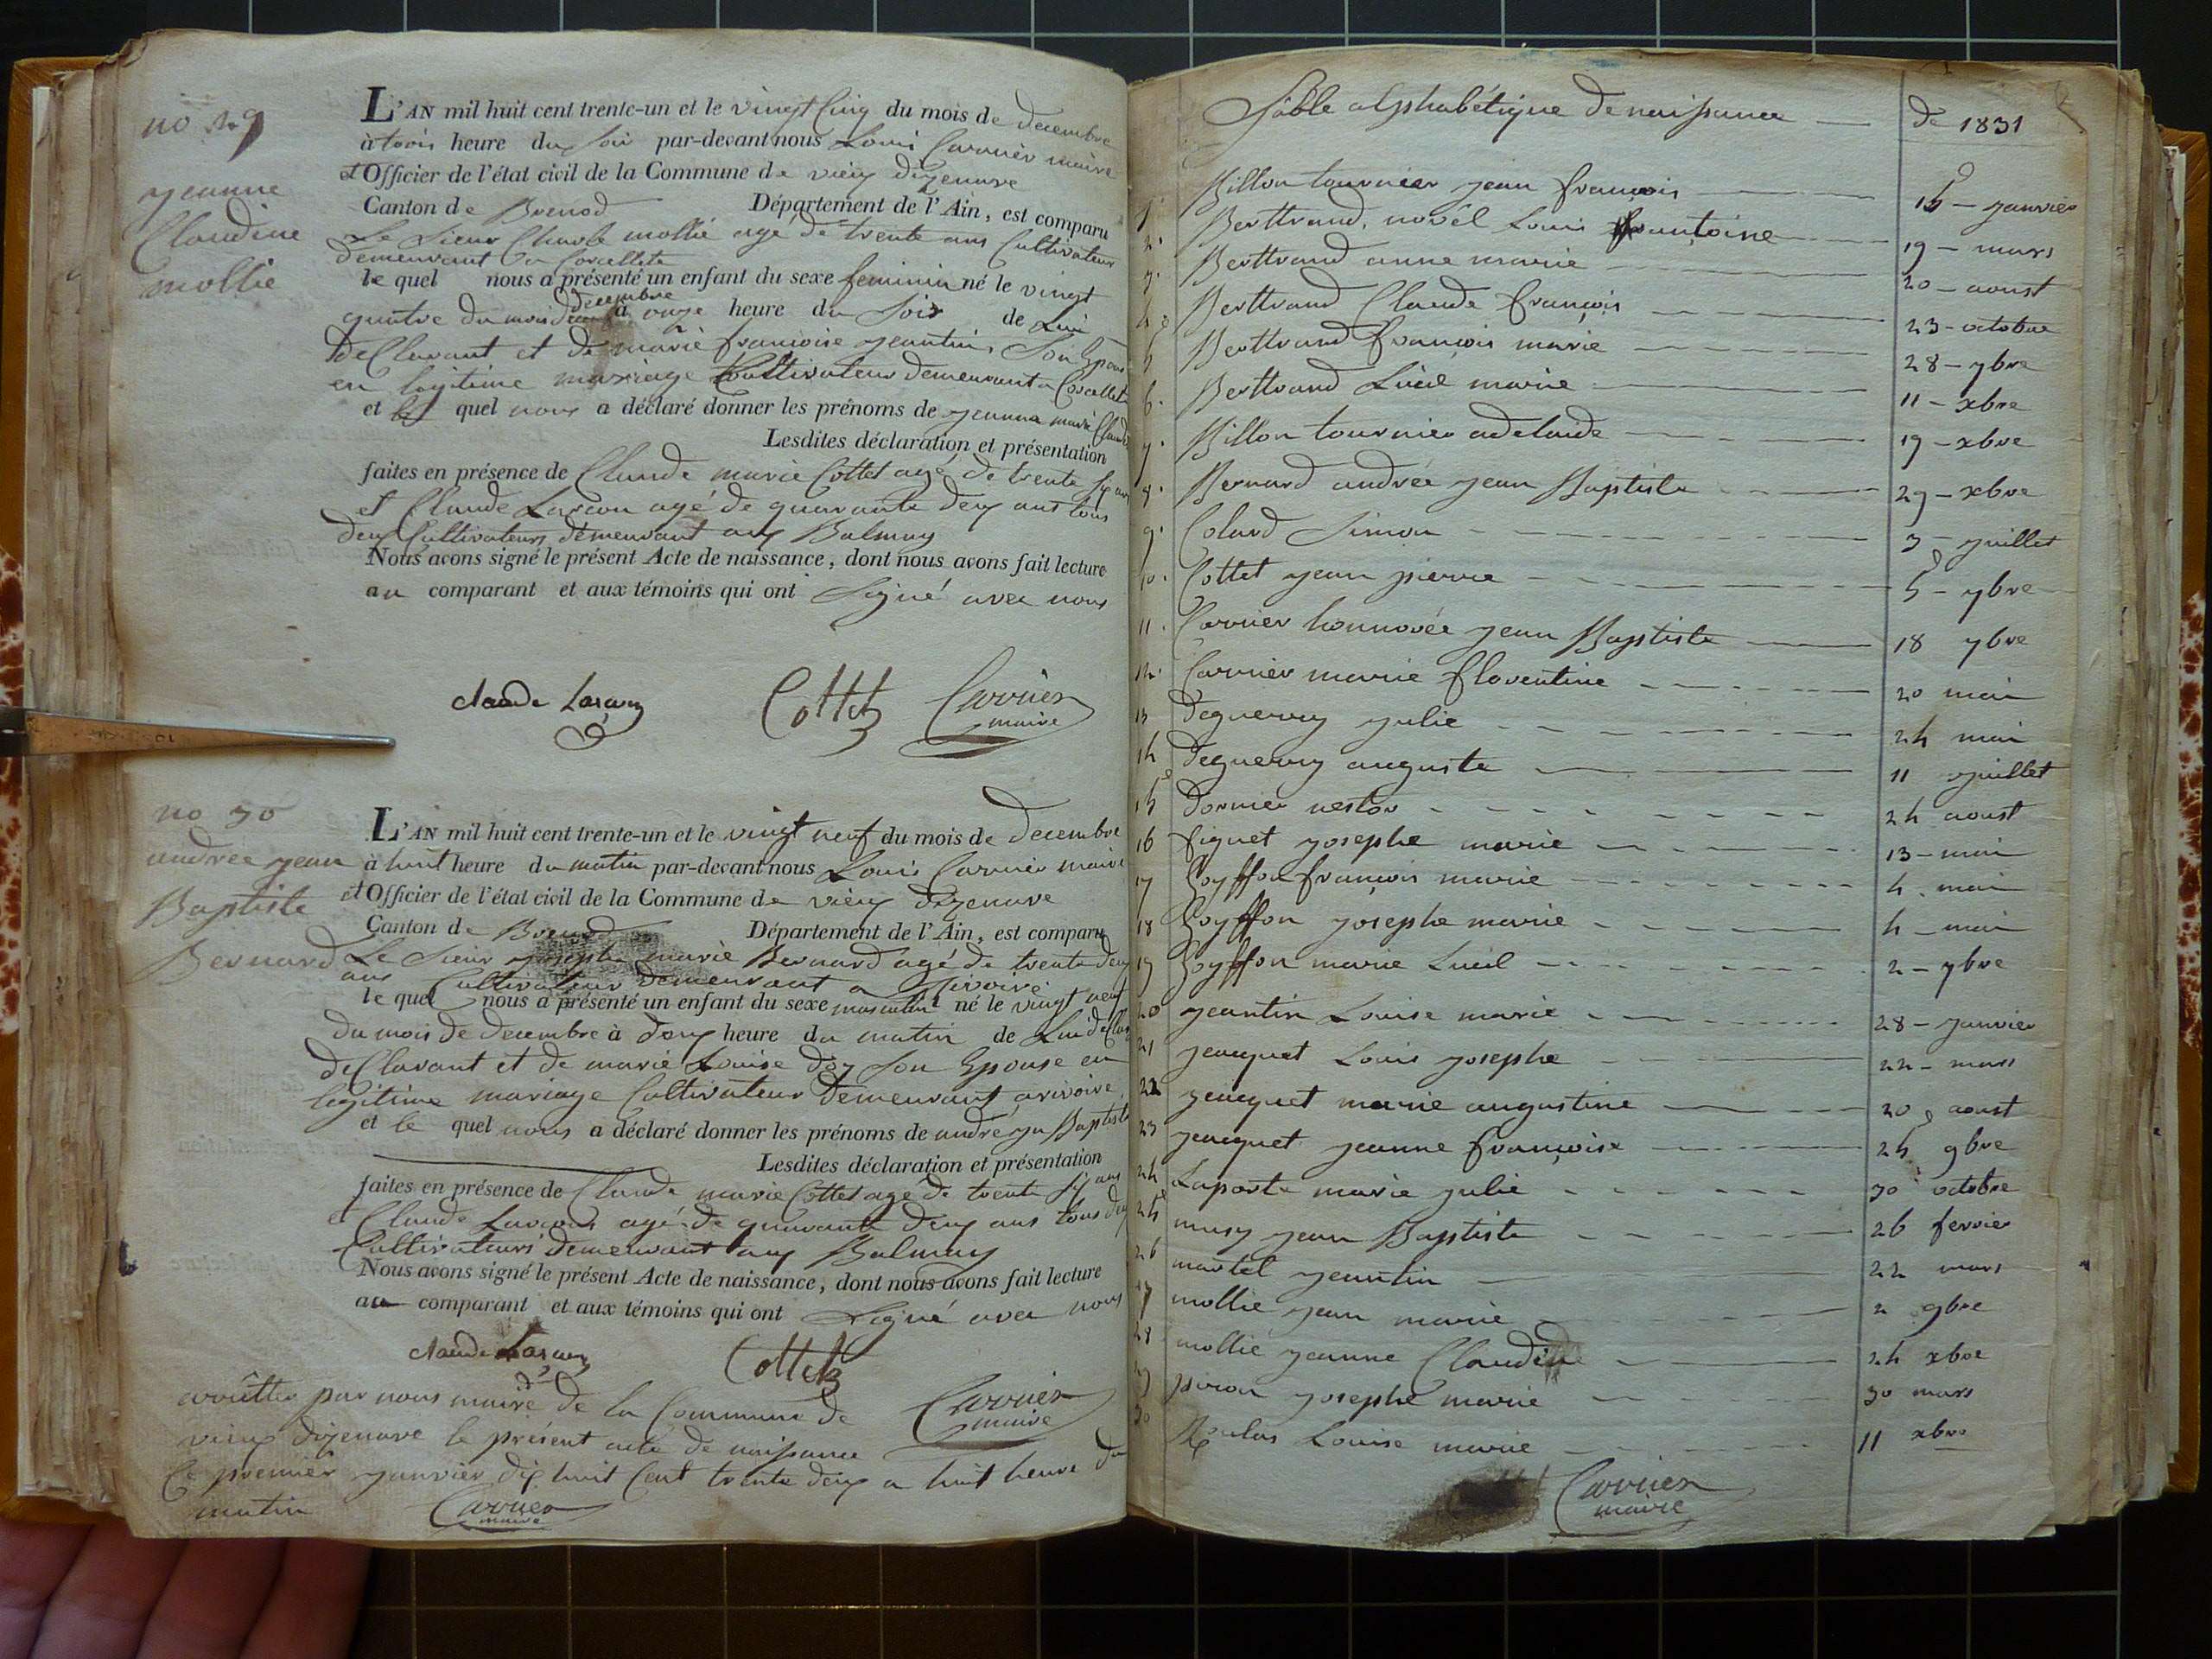 no 29
jeanne
Claudine
mollie
L'AN mil huit cent trente-un et le vingt Cinq du mois de decembre
à trois heure du soir par-devant nous Louis Carrier maire
et Officier de l'état civil de la Commune de vieux dizenave
Canton de Brenod Département de l'Ain, est comparu
Le Sieur Charle mollié agé de trente ans Cultivateur
demeurant a Corcellete
le quel nous a présenté un enfant du sexe feminin né le vingt
quatre du mois decembre à onze heure du soir de Lui
deClarant et de marie francoise jeantin Son Epouse
en legitime mariage Cultivateur demeurant a Corcellete
et le quel nous a déclaré donner les prénoms de jeanne marie Claudi
Lesdites déclaration et présentation
faites en présence de Claude marie Cottet agé de trente six ans
et Claude Larcon agé de quarante deux ans tous
deux Cultivateurs demeurant aux Balmay
Nous avons signé le présent Acte de naissance, dont nous avons fait lecture
au comparant et aux témoins qui ont Signé avec nous
claude Larcon Cottet Carrier
maire
no 30
andrée jean
Baptiste
Bernard
L'AN mil huit cent trente-un et le vingt neuf du mois de decembre
à huit heure du matin par-devant nous Louis Carrier maire
et Officier de l'état civil de la Commune de vieux dizenave
Canton de Brenod Département de l'Ain, est comparu
Le Sieur josephe marie Bernard agé de trente deux
ans Cultivateur demeurant a Rivoire
le quel nous a présenté un enfant du sexe masculin né le vingt neuf
du mois de decembre à deux heure du matin de Lui
deClarant et de marie Louise Son Epouse en
legitime mariage Cultivateur demeurant a rivoire
et le quel nous a déclaré donner les prénoms de andré jn Baptiste
Lesdites déclaration et présentation
faites en présence de Claude marie Cottet agé de trente six ans
et Claude Larcon agé de quarante deux ans tous deux
Cultivateurs demeurant aux Balmay
Nous avons signé le présent Acte de naissance, dont nous avons fait lecture
au comparant et aux témoins qui ont Signé avec nous
claude Larcon Cottet
Carrier
maire
arrêttes par nous maire de la Commune de
vieux dizenave le présent acte de naissance
Ce premier janvier dix huit Cent trente deux a huit heure du
matin Carrier
maire
Table alphabétique de naissance de 1831
1. Billon tournier jean françois 15 - janvier
2. Berttrand novel Louis antoine 19 - mars
3. Berttrand anne marie 20 - aoust
4. Berttrand Claude françois 23 - octobre
5 Berttrand françois marie 28 - 7bre
6. Berttrand Lucie marie 11 - xbre
7. Billon tournier adelaide 19 - xbre
8. Bernard andrée jean Baptiste 29 - xbre
9. Colard Simon 3 - juillet
10. Cottet jean pierre 5 - 7bre
11. Carrier honnorée jean Baptiste 18 7bre
12. Carrier marie florentine 20 mai
13 deguerry julie 24 mai
14 deguerry auguste 11 juillet
15 dornier nestor 24 aoust
16 figuet josephe marie 13 - mai
17 Goyffon françois marie 4 - mai
18 Goyffon josephe marie 4 - mai
19 Goyffon marie Lucil 2 - 7bre
20 jeantin Louise marie 28 - janvier
21 jeacquet Louis josephe 22 - mars
22 jeacquet marie augustine 20 aoust
23 jeacquet jeanne françoise 24 9bre
24 Laporte marie julie 30 octobre
25 musy jean Baptiste 26 fevrier
26 martel jeantin 22 mars
27 mollie jean marie 2 9bre
28 mollié jeanne Claudine 24 xbre
29 piron josephe marie 30 mars
30 Roulas Louise marie 11 xbre
Carrier
maire